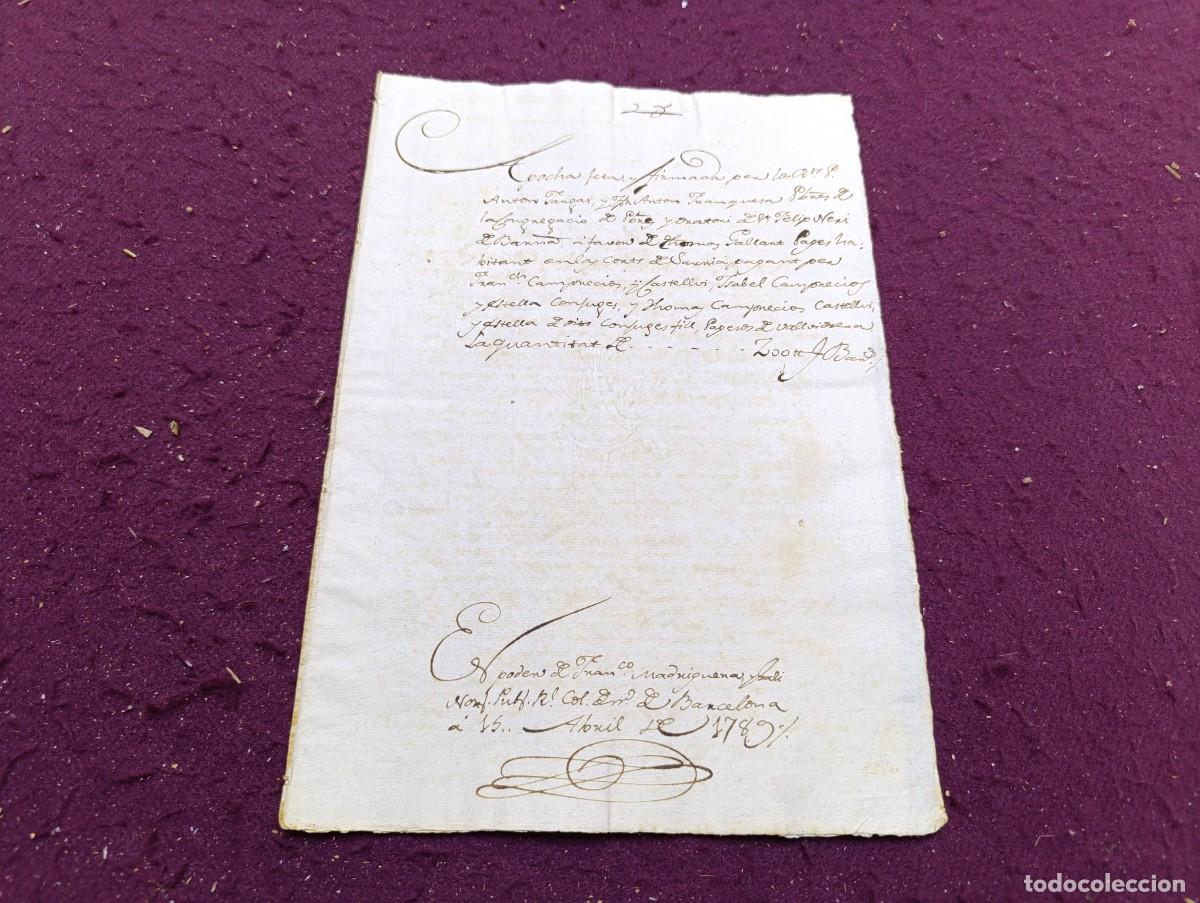 Apocha feta, y firmada per los Rts Ps.
Anton Targas, y Jph Anton Franquesa Pbres de
la Congregació de Pbres y Oratori de St Felip Neri
de Barna á favor de Thomas Gallart Pages ha-
bitant en las Corts de Sarriá pagant per
Franch Camprecios, y Castellvi, Isabel Camprecios
y Estella Conjuges, y Thomas Camprecios Castellvi,
y Estella de dits Conjuges fill Pagesos de Vallvidrera
la quantitat de - - - - - - 200 ££ Bars
En poder de Franco Madriguera, y Galí
Nori Publ. Rl. Col. de nro. de Barcelona
á 15.. Abril de 1789.
todocoleccion